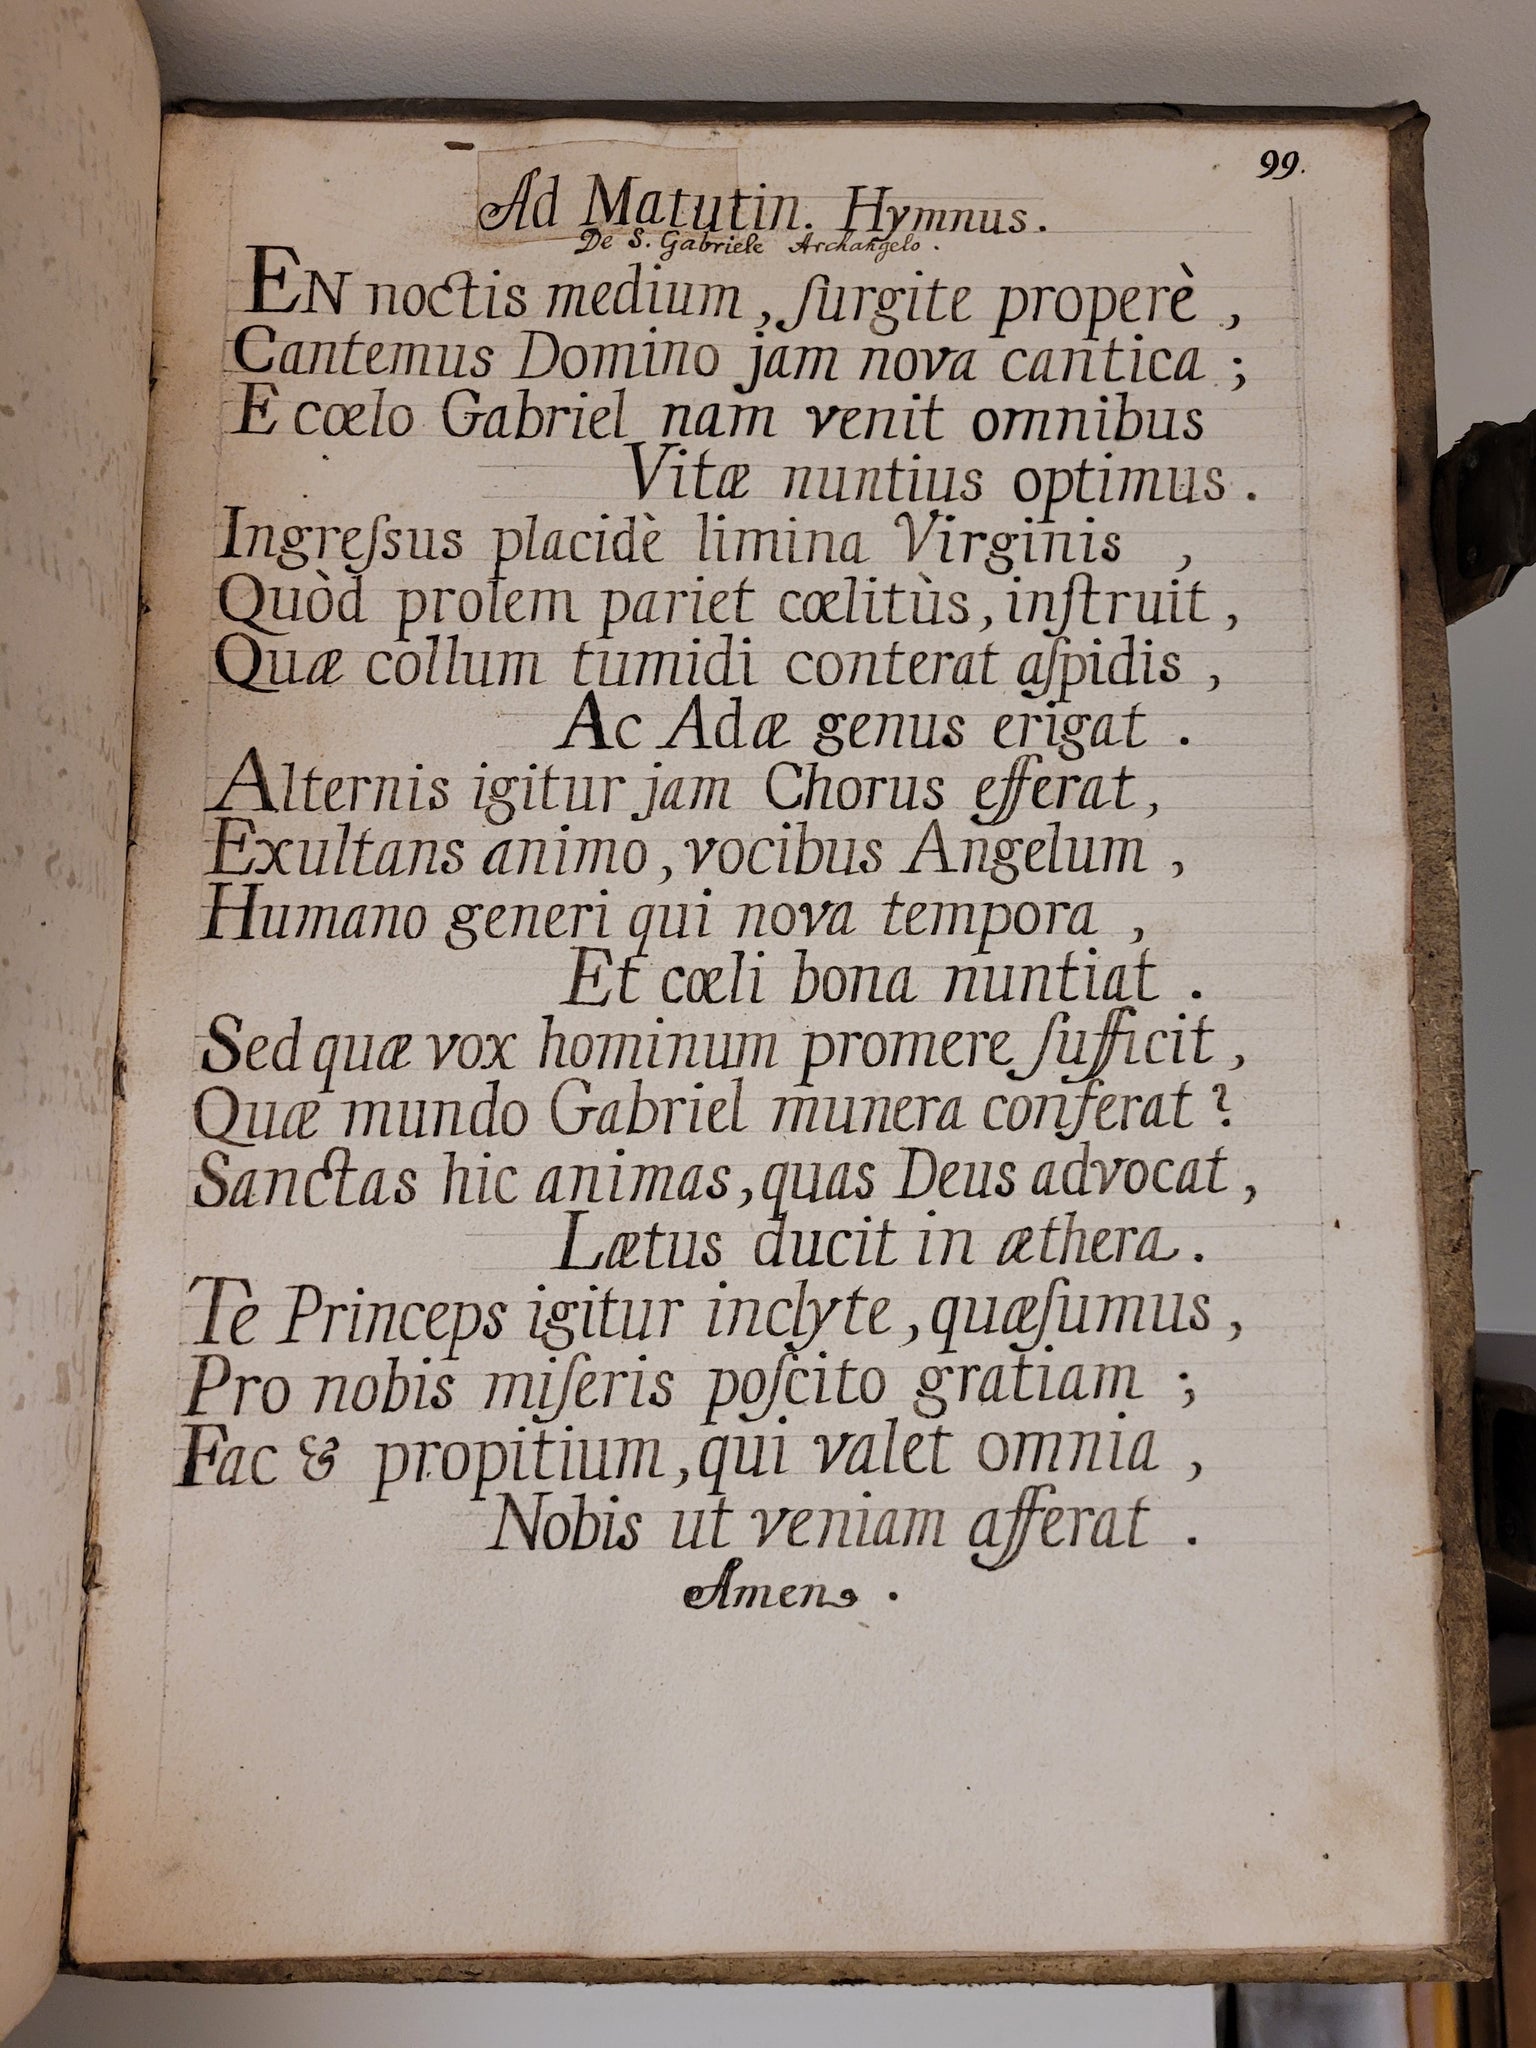 99.
Ad Matutin. Hymnus.
De S. Gabriele Archangelo.
EN noctis medium, ſurgite properè,
Cantemus Domino jam nova cantica;
E cœlo Gabriel nam venit omnibus
Vitæ nuntius optimus.
Ingreſsus placidè limina Virginis,
Quòd prolem pariet cœlitùs, inſtruit,
Quæ collum tumidi conterat aſpidis,
Ac Adæ genus erigat.
Alternis igitur jam Chorus efferat,
Exultans animo, vocibus Angelum,
Humano generi qui nova tempora,
Et cœli bona nuntiat.
Sed quæ vox hominum promere ſufficit,
Quæ mundo Gabriel munera conferat?
Sanctas hic animas, quas Deus advocat,
Lætus ducit in æthera.
Te Princeps igitur inclyte, quæſumus,
Pro nobis miſeris poſcito gratiam;
Fac & propitium, qui valet omnia,
Nobis ut veniam afferat.
Amen.